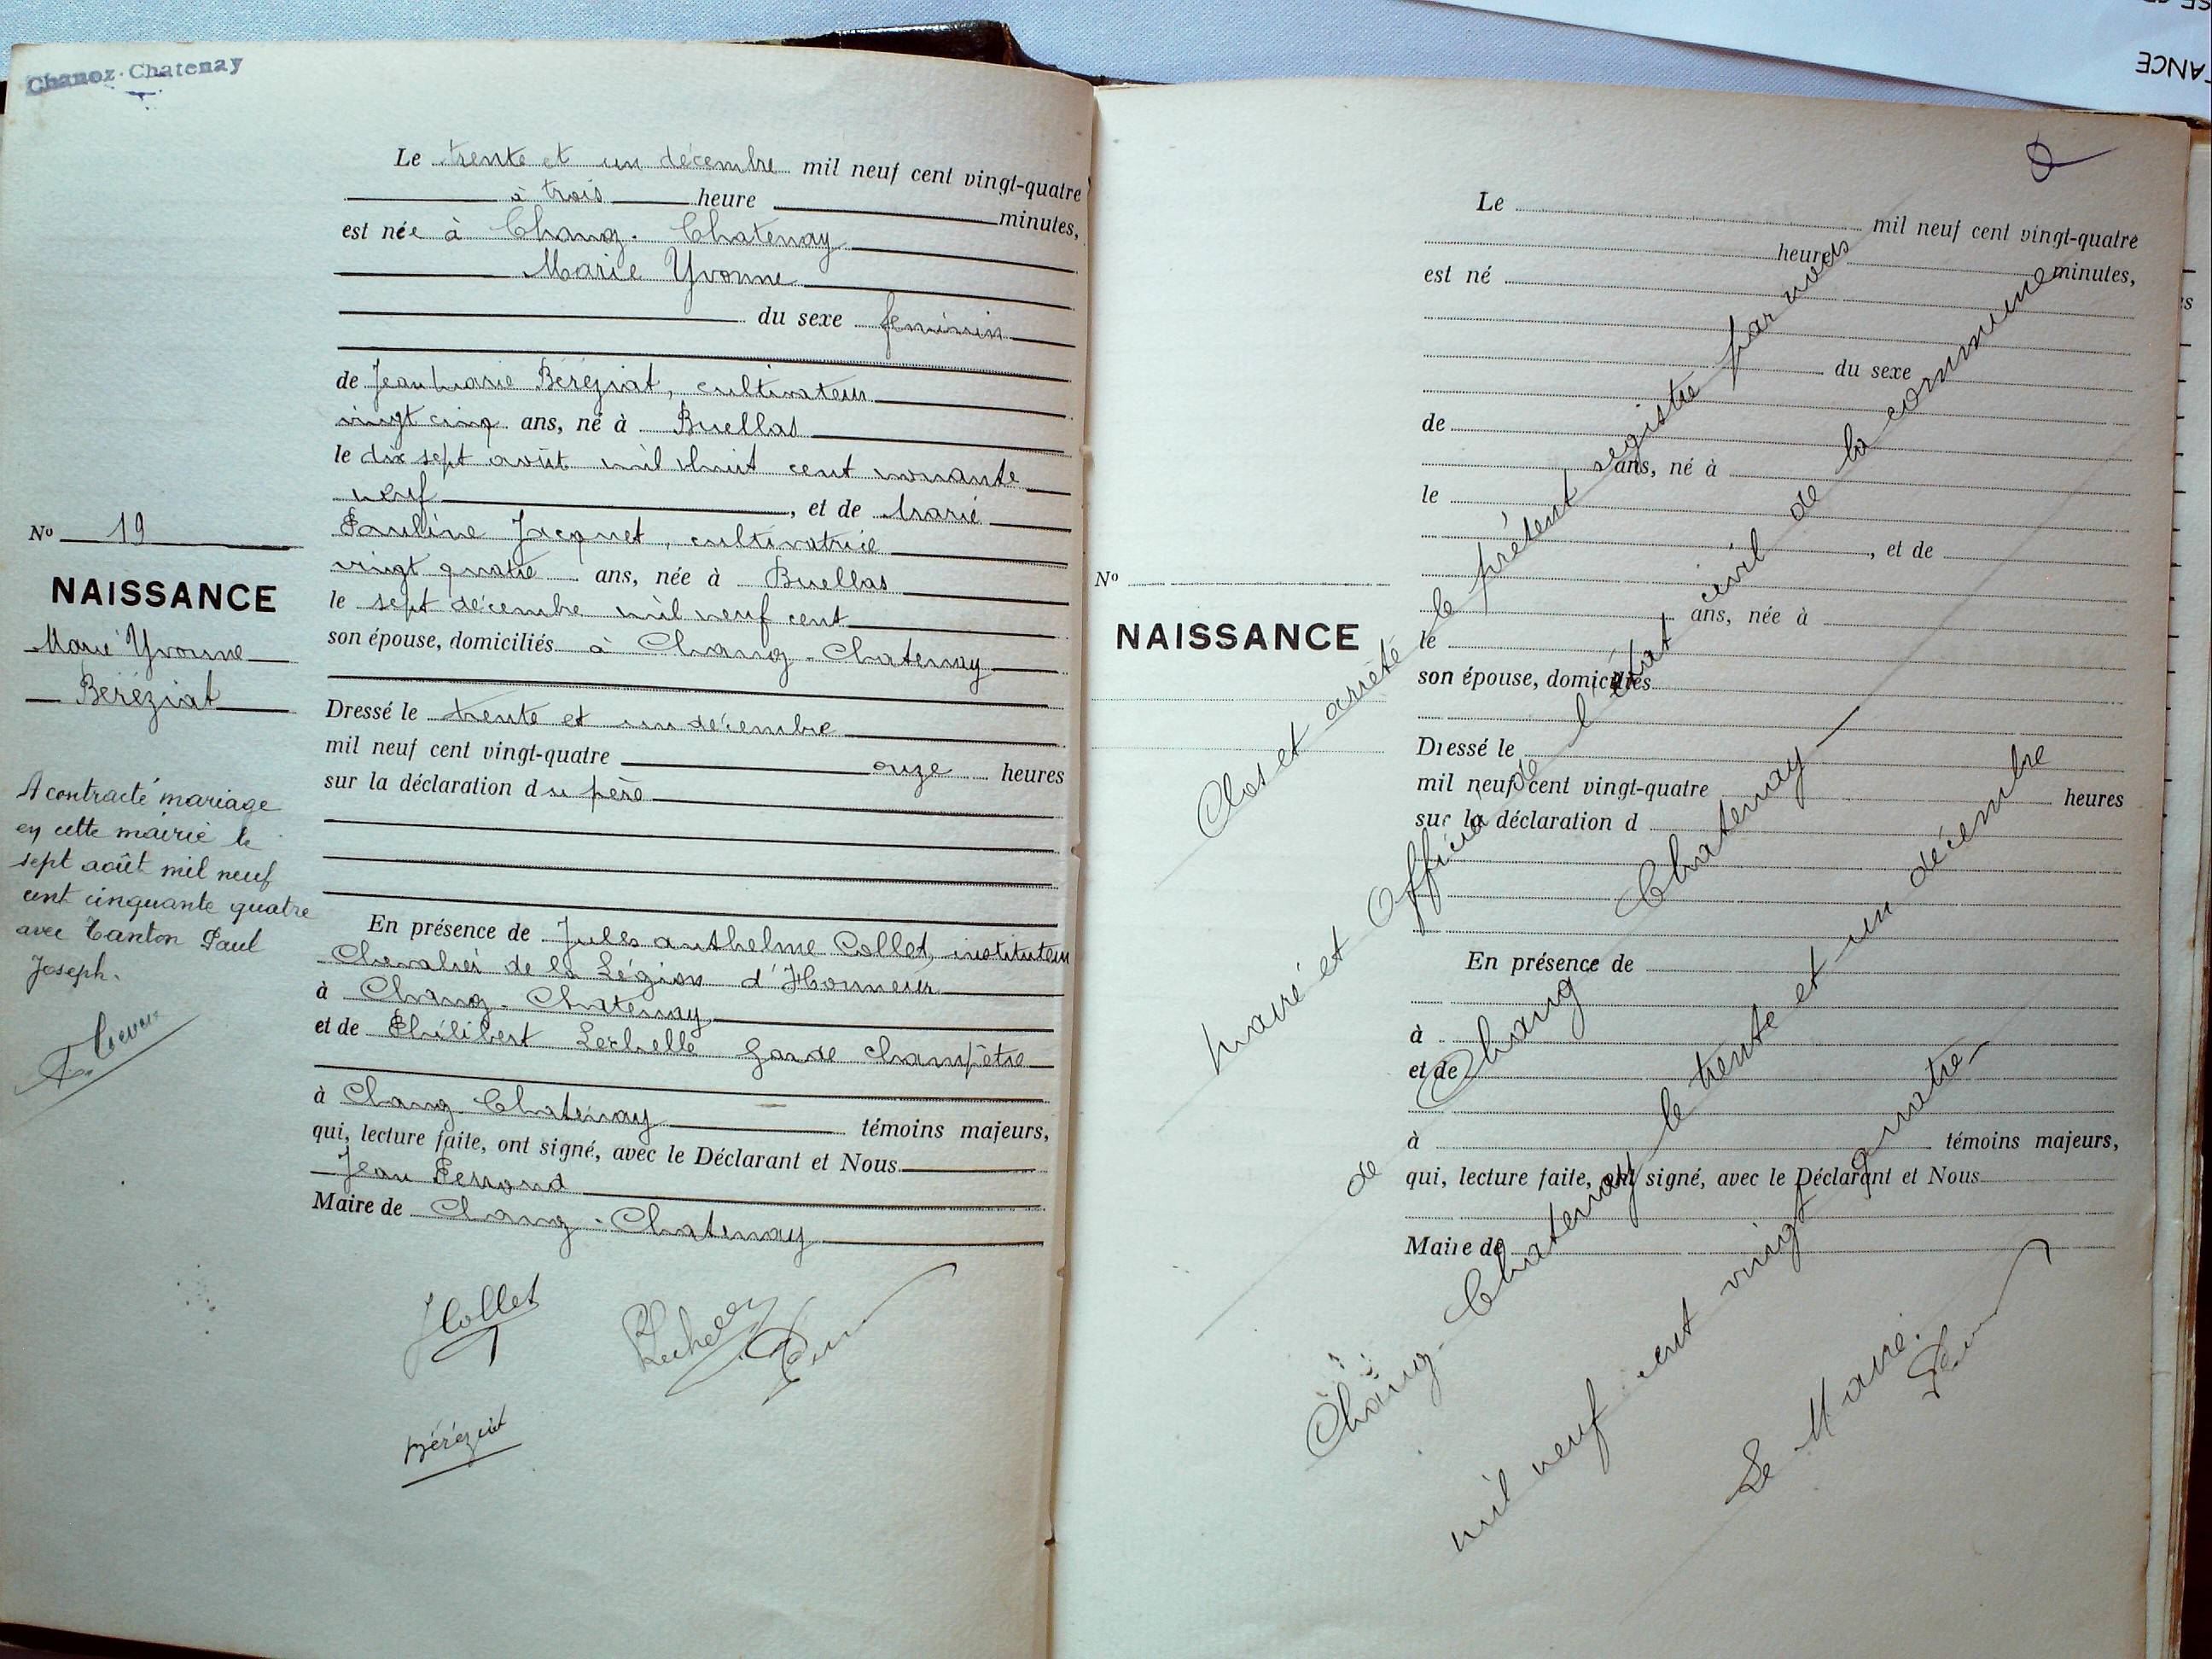 Chanoz-Chatenay
Le trente et un décembre mil neuf cent vingt-quatre
à trois heure minutes,
est née à Chanoz-Chatenay
Marie Yvonne
du sexe feminin
de Jean Marie Béréziat, cultivateur
vingt cinq ans, né à Buellas
le dix sept août mil huit cent nonante
neuf, et de Marie
Pauline Jacquet, cultivatrice
vingt quatre ans, née à Buellas
le sept décembre mil neuf cent
son épouse, domiciliés à Chanoz-Chatenay
Dressé le trente et un décembre
mil neuf cent vingt-quatre onze heures
sur la déclaration du père
En présence de Jules Anthelme Collet, instituteur
Chevalier de la Légion d'Honneur
à Chanoz-Chatenay
et de Philibert Lechelle garde champêtre
à Chanoz Chatenay témoins majeurs,
qui, lecture faite, ont signé, avec le Déclarant et Nous
Jean Perrond
Maire de Chanoz-Chatenay
JCollet
Béréziat
No 19
NAISSANCE
Marie Yvonne
Béréziat
A contracté mariage
en cette mairie le
sept août mil neuf
cent cinquante quatre
avec Tanton Paul
Joseph.
Le mil neuf cent vingt-quatre
heures minutes,
est né
du sexe
de
ans, né à
le
, et de
ans, née à
le
son épouse, domiciliés
Dressé le
mil neuf cent vingt-quatre heures
sur la déclaration d
En présence de
à
et de
à témoins majeurs,
qui, lecture faite, ont signé, avec le Déclarant et Nous
Maire de
No
NAISSANCE
Clos et arrêté le présent registre par nous
maire et Officier de l'état civil de la commune
de Chanoz Chatenay
Chanoz-Chatenay le trente et un décembre
mil neuf cent vingt quatre
Le Maire.
ANCE